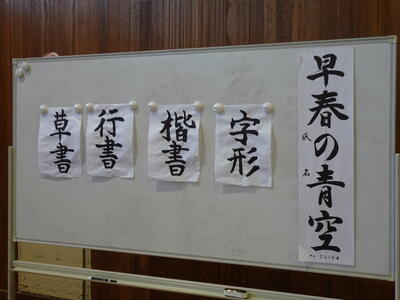 早春の青空
氏名
字形
楷書
行書
草書